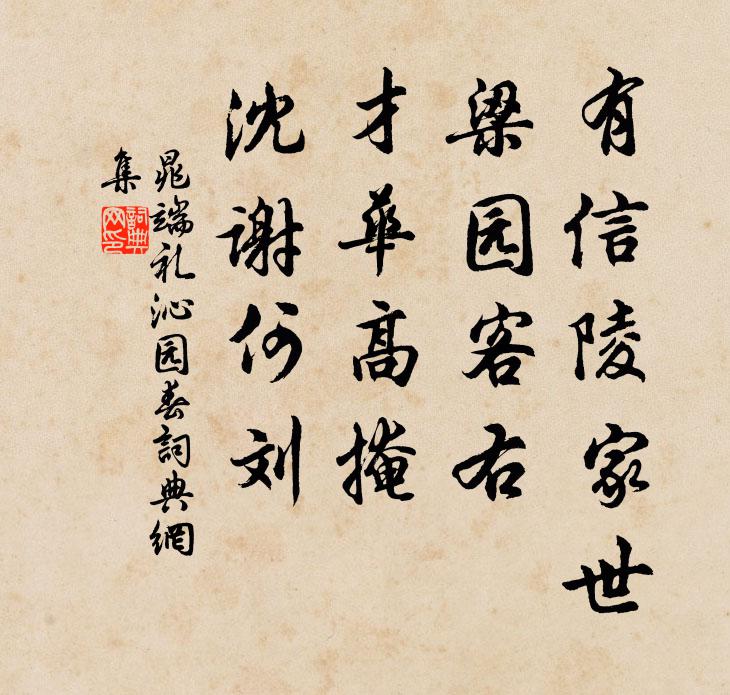 有信陵家世
梁园客右
才華高掩
沈谢何刘
晁端礼沁园春詞典網
集
詞典网印